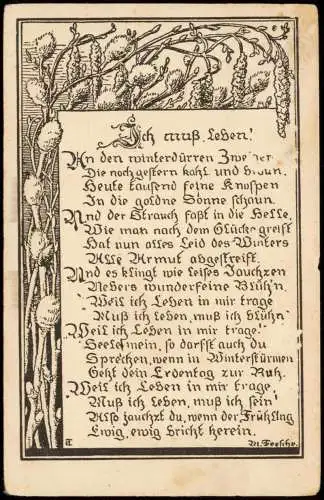 Ich muß leben!
An den winterdürren Zweigen
Die noch gestern kahl und braun,
Heute tausend feine Knospen
In die goldne Sonne schaun.
Und der Strauch faßt in die Helle,
Wie man nach dem Glücke greift
Hat nun alles Leid des Winters
Alle Armut abgestreift.
Und es klingt wie leises Jauchzen
Uebers wunderfeine Blüh'n
Weil ich Leben in mir trage
Muß ich leben, muß ich blühn
Weil ich Leben in mir trage!
Seele mein, so darfst auch du
Sprechen, wenn in Winterstürmen
Geht dein Erdentag zur Ruh.
Weil ich Leben in mir trage,
Muß ich leben, muß ich sein!
Also jauchzt du, wenn der Frühling
Ewig, ewig bricht herein.
M. Feesche.